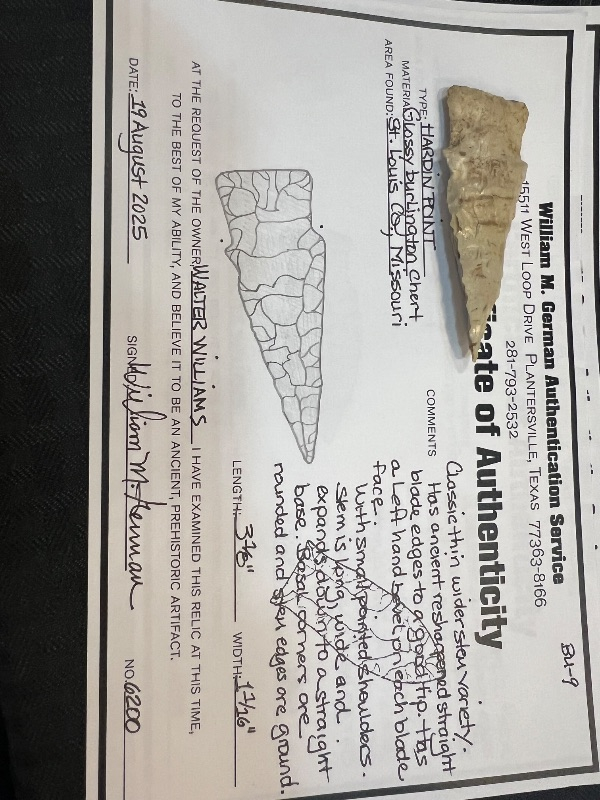 BU-9
William M. German Authentication Service
15511 WEST LOOP DRIVE PLANTERSVILLE, TEXAS 77363-8166
281-793-2532
icate of Authenticity
TYPE: HARDIN POINT
MATERIAL: Glossy burlington Chert
AREA FOUND: St. Louis Co, Missouri
COMMENTS
Classic thin wider stem variety.
Has ancient resharpened straight
blade edges to a good tip. Has
a left hand bevel on each blade
face.
With small pointed shoulders.
Stem is long, wide and
expands down to a straight
base. Basal corners are
rounded and stem edges are ground.
LENGTH: WIDTH: 1 7/16"
AT THE REQUEST OF THE OWNER, WALTER WILLIAMS I HAVE EXAMINED THIS RELIC AT THIS TIME,
TO THE BEST OF MY ABILITY, AND BELIEVE IT TO BE AN ANCIENT, PREHISTORIC ARTIFACT.
DATE: 19 August 2025 SIGNED William M. German NO. 6200